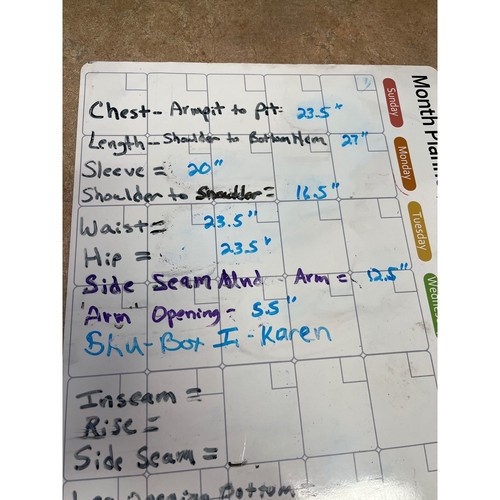 Chest - Armpit to Pit: 23.5"
Length - Shoulder to Bottom Hem 27"
Sleeve = 20"
Shoulder to Shoulder = 16.5"
Waist = 23.5"
Hip = 23.5"
Side Seam And - Arm = 12.5"
"Arm" Opening - 5.5"
Shu-Box I - Karen
Inseam =
Rise =
Side Seam =
Leg Opening Bottom
Month
Sunday
Monday
Tuesday